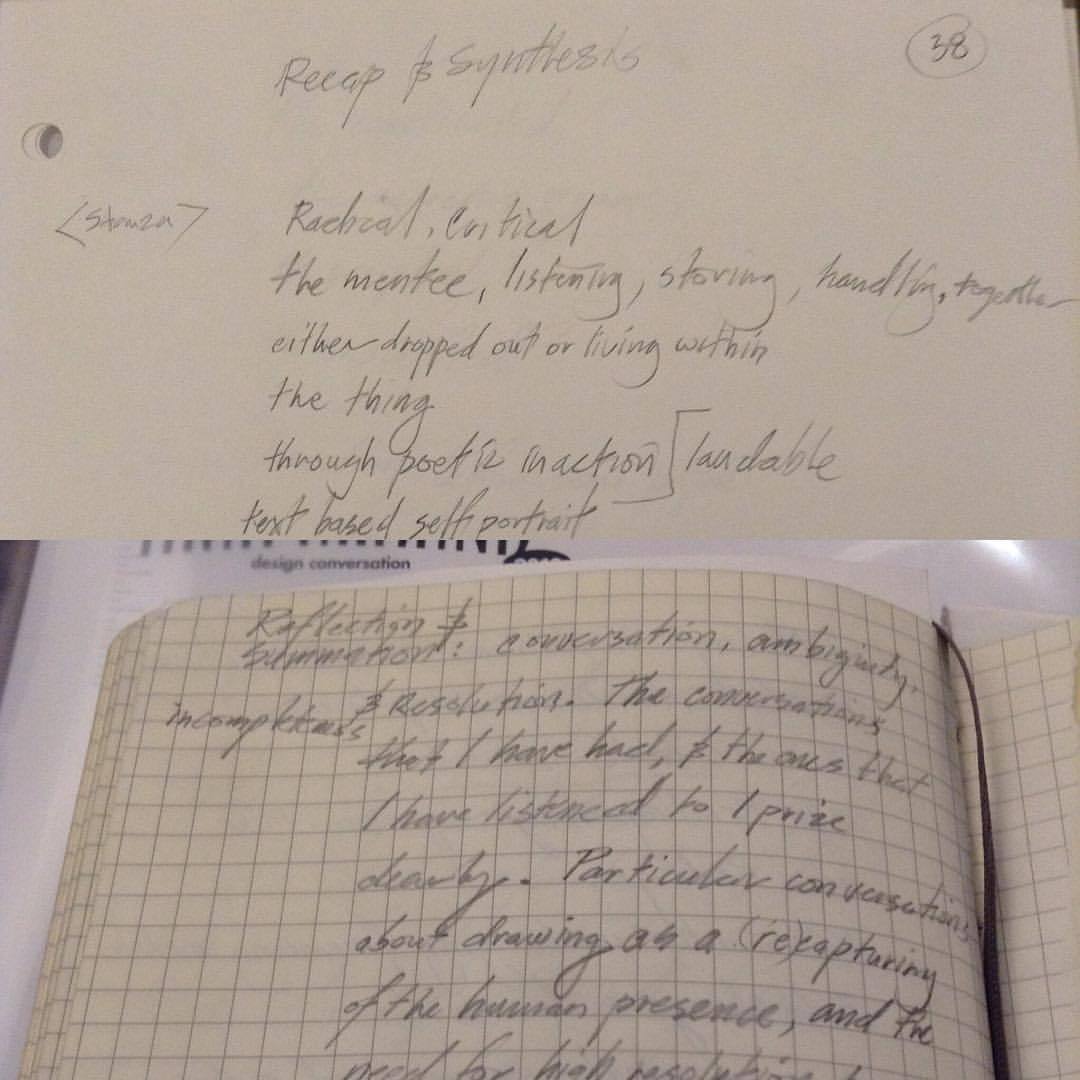 Recap & Synthesis
38
<stanza>
Radical, Critical
the mentee, listening, storing, handling, together
either dropped out or living within
the thing
through poetic inaction
laudable
text based self portrait
design conversation
Reflection &
Summation: conversation, ambiguity,
incompleteness
& Resolution. The conversations
that I have had, & the ones that
I have listened to I prize
dearly. Particular conversations
about drawing as a (re)capturing
of the human presence, and the
need for high resolution